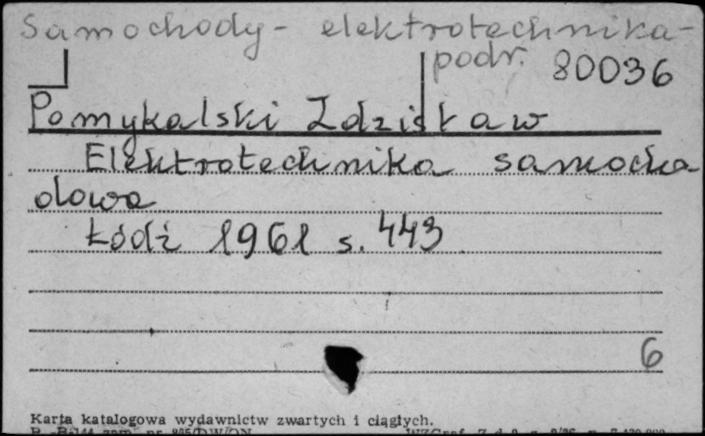 Samochody - elektrotechnika -
podr. 80036
Pomykalski Zdzisław
Elektrotechnika samocho
dowa
Łódź 1961 s. 443
6
Karta katalogowa wydawnictw zwartych i ciągłych.